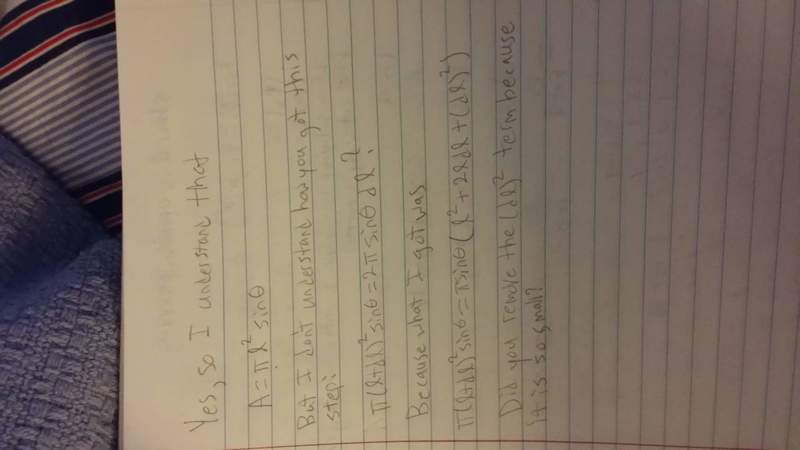 Yes, so I understand that
A = πl² sinθ
But I don't understand how you got this
step:
π(l+dl)² sinθ = 2π sinθ dl?
Because what I got was
π(l+dl)² sinθ = π sinθ (l² + 2ldl + (dl)²)
Did you remove the (dl)² term because
it is so small?